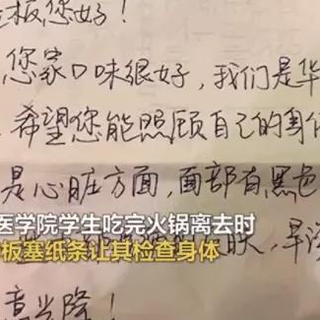 板您好!
您家口味很好,我们是华
希望您能照顾自己的身体
是心脏方面,面部有黑色
医学院学生吃完火锅离去时
板塞纸条让其检查身体
意兴隆!